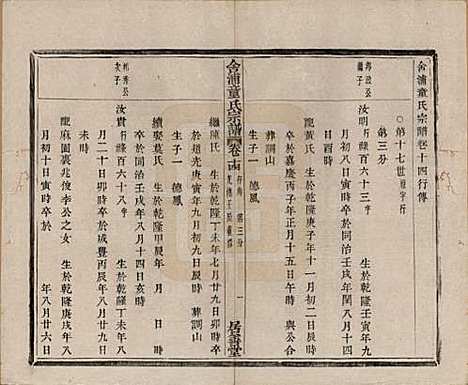 舍浦童氏宗譜卷十四行傳
第十七世
第三分
汝明行禄百六十三 字
生於乾隆壬寅年九
月 日 時 卒於同治壬戌年閏八月十四
日酉時
娶龍黃氏 生於乾隆庚子年十一月初二日辰時
卒於嘉慶丙子年正月十五日午時 與公合
葬闗山
生子一 德鳳
舍浦童氏宗譜
卷十四
第三分
一
居善堂
繼陳氏 生於乾隆丁未年七月廿九日卯時 卒
於道光庚寅年九月初九日辰時 葬闗山
生子一 德風
續娶葉氏 生於乾隆甲辰年 月 日 時
卒於同治壬戌年八月十四日亥時
次子
汝貴行禄百六十八 字 生於乾隆丁未年八
月二十日卯時 卒於咸豐丙辰年八月廿九日
未時
龍麻園裏兆俊李公之女 生於乾隆庚戌年八
月初十日戌時 卒於 年八月廿六日